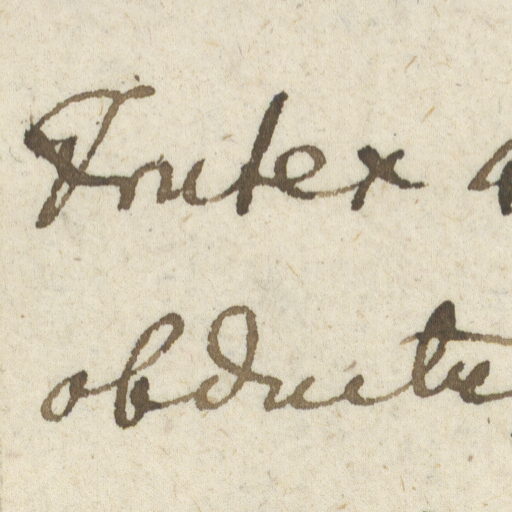 Frutex
obductu